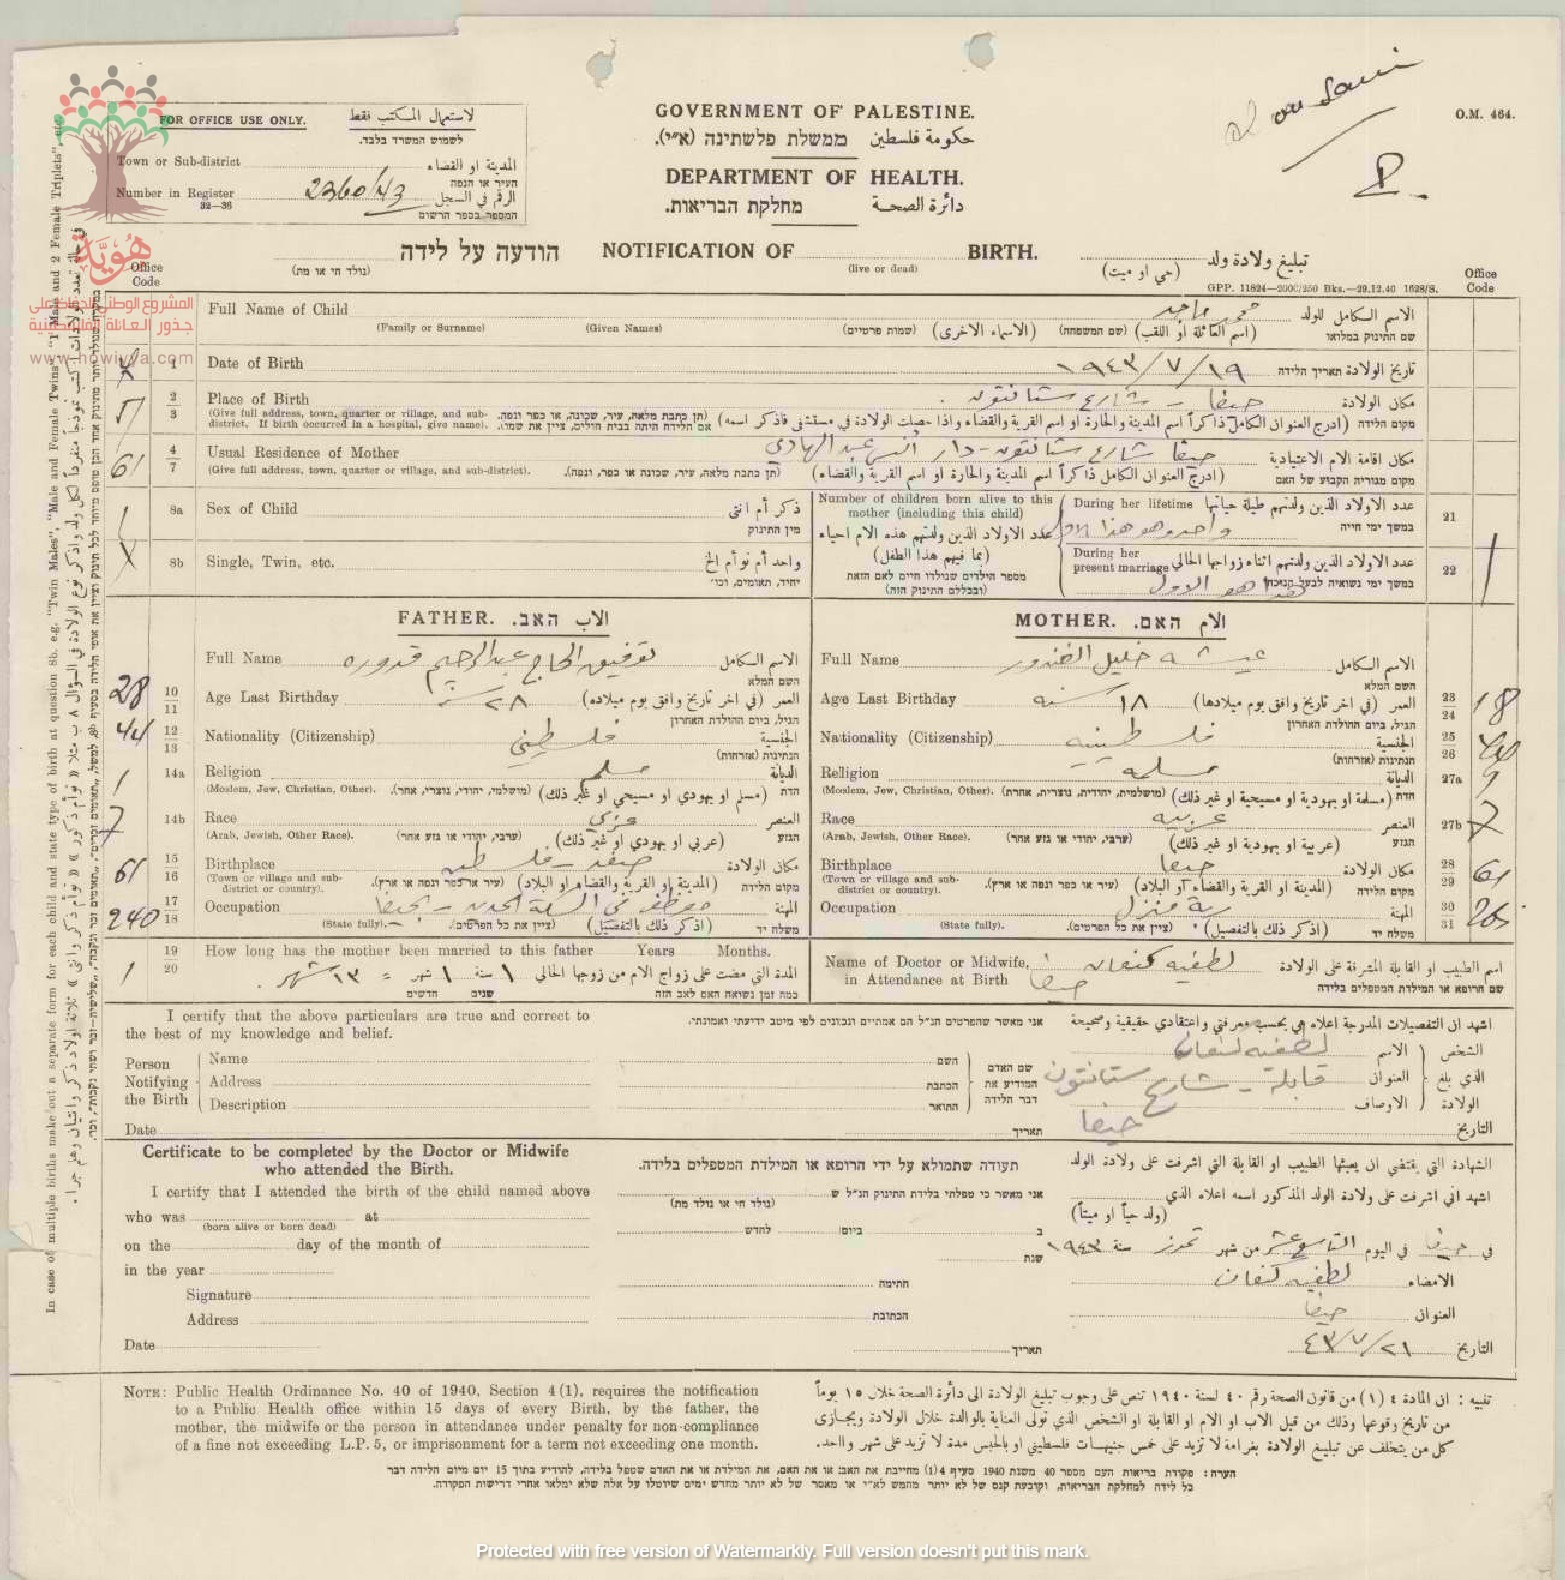 GOVERNMENT OF PALESTINE.
حكومة فلسطين ממשלת פלשתינה (א״י).
DEPARTMENT OF HEALTH.
دائرة الصحة מחלקת הבריאות.
O.M. 464.
FOR OFFICE USE ONLY. لاستعمال المكتب فقط
לשמוש המשרד בלבד.
Town or Sub-district المدينة او القضاء
העיר או הנפה
Number in Register 2360/43 الرقم في السجل
32—36 המספר בספר הרשום
הודעה על לידה NOTIFICATION OF BIRTH. تبليغ ولادة ولد
(נולד חי או מת) (live or dead) (حي او ميت)
G.P.P. 11824—2000/250 Bks.—29.12.40 1628/8.
Office Code
Office Code
هويّة
المشروع الوطني للحفاظ على
جذور العائلة الفلسطينية
www.howiyya.com
Full Name of Child محمد ماجد الاسم الكامل للولد
שם התינוק במלואו
(Family or Surname) (Given Names) (שמות פרטיים) (الاسماء الاخرى) (שם המשפחה) (اسم العائلة او اللقب)
1 Date of Birth ١٩/٧/١٩٤٣ تاريخ الولادة תאריך הלידה
2 3 Place of Birth حيفا – شارع ستانتون. مكان الولادة
(Give full address, town, quarter or village, and sub-district. If birth occurred in a hospital, give name).
(תן כתבת מלאה, עיר, שכונה, או כפר ונפה. אם הלידה היתה בבית חולים, ציין את שמו).
(ادرج العنوان الكامل ذاكراً اسم المدينة والحارة او اسم القرية والقضاء واذا حصلت الولادة في مستشفى فاذكر اسمه) מקום הלידה
61 4 7 Usual Residence of Mother حيفا شارع ستانتون – دار أنس عبد الهادي مكان اقامة الام الاعتيادية
(Give full address, town, quarter or village, and sub-district). (תן כתבת מלאה, עיר, שכונה או כפר, ונפה). (ادرج العنوان الكامل ذاكراً اسم المدينة والحارة او اسم القرية والقضاء) מקום מגוריה הקבוע של האם
8a Sex of Child ذكر أم انثى
מין התינוק
8b Single, Twin, etc. واحد أم توأم الخ
יחיד, תאומים, וכו׳
Number of children born alive to this mother (including this child)
عدد الاولاد الذين ولدتهم هذه الام احياء
(بما فيهم هذا الطفل)
מספר הילדים שנולדו חיים לאם הזאת
(ובכללם התינוק הזה)
During her lifetime عدد الاولاد الذين ولدتهم طيلة حياتها 21
واحد وهو هذا الاول במשך ימי חייה
During her present marriage عدد الاولاد الذين ولدتهم اثناء زواجها الحالي 22
هذا هو الاول במשך ימי נשואיה לבעל הנוכחי
FATHER. האב. الاب
MOTHER. האם. الام
Full Name توفيق الحاج عبد الرحيم قدوره الاسم الكامل
השם המלא
Full Name عيشه خليل الغندور الاسم الكامل
השם המלא
28 10 11 Age Last Birthday ٢٨ سنة العمر (في اخر تاريخ وافق يوم ميلاده)
הגיל, ביום ההולדת האחרון
Age Last Birthday ١٨ سنه العمر (في اخر تاريخ وافق يوم ميلادها) 23 24 18
הגיל, ביום ההולדת האחרון
44 12 13 Nationality (Citizenship) فلسطيني الجنسية
הנתינות (אזרחות)
Nationality (Citizenship) فلسطينيه الجنسية 25 26
הנתינות (אזרחות)
1 14a Religion مسلم الديانة
(Moslem, Jew, Christian, Other). (מושלמי, יהודי, נוצרי, אחר). (مسلم او يهودي او مسيحي او غير ذلك) הדת
Religion مسلمه الديانة 27a
(Moslem, Jew, Christian, Other). (מושלמית, יהודית, נוצרית, אחרת). (مسلمة او يهودية او مسيحية او غير ذلك) הדת
7 14b Race عربي العنصر
(Arab, Jewish, Other Race). (ערבי, יהודי או גזע אחר) (عربي او يهودي او غير ذلك) הגזע
Race عربيه العنصر 27b 7
(Arab, Jewish, Other Race). (ערבי, יהודי או גזע אחר) (عربية او يهودية او غير ذلك) הגזע
61 15 16 Birthplace صفد – فلسطين مكان الولادة
(Town or village and sub-district or country). (עיר או כפר ונפה או ארץ). (المدينة او القرية والقضاء او البلاد) מקום הלידה
Birthplace حيفا مكان الولادة 28 29 61
(Town or village and sub-district or country). (עיר או כפר ונפה או ארץ). (المدينة او القرية والقضاء او البلاد) מקום הלידה
240 17 18 Occupation موظف في السكة الحديد – بحيفا المهنة
(State fully). (ציין את כל הפרטים). (اذكر ذلك بالتفصيل) משלח יד
Occupation ربة منزل المهنة 30 31 265
(State fully). (ציין את כל הפרטים). (اذكر ذلك بالتفصيل) משלח יד
1 19 20 How long has the mother been married to this father Years Months.
المدة التي مضت على زواج الام من زوجها الحالي ١ سنة ١ شهر = ١٣ شهر.
כמה זמן נשואה האם לאב הזה שנים חדשים
Name of Doctor or Midwife, in Attendance at Birth لطفيه كنعان حيفا اسم الطبيب او القابلة المشرفة على الولادة
שם הרופא או המילדת המטפלים בלידה
I certify that the above particulars are true and correct to the best of my knowledge and belief.
אני מאשר שהפרטים הנ״ל הם אמתיים ונכונים לפי מיטב ידיעתי ואמונתי.
اشهد ان التفصيلات المدرجة اعلاه هي بحسب معرفتي واعتقادي حقيقية وصحيحة
Person Notifying the Birth
Name השם
Address הכתבת
Description התואר
שם האדם המודיע את דבר הלידה
الشخص الذي بلغ الولادة
الاسم لطفيه كنعان
العنوان قابلة – شارع ستانتون
الاوصاف حيفا
Date תאריך التاريخ
Certificate to be completed by the Doctor or Midwife who attended the Birth.
תעודה שתמולא על ידי הרופא או המילדת המטפלים בלידה.
الشهادة التي يقتضي ان يعبئها الطبيب او القابلة التي اشرفت على ولادة الولد
I certify that I attended the birth of the child named above
who was at
(born alive or born dead)
on the day of the month of
in the year
Signature
Address
Date
אני מאשר כי טפלתי בלידת התינוק הנ״ל ש
(נולד חי או נולד מת)
ב ביום לחדש
שנת
חתימה
הכתובת
תאריך
اشهد اني اشرفت على ولادة الولد المذكور اسمه اعلاه الذي
(ولد حياً او ميتاً)
في حيفا في اليوم التاسع عشر من شهر تموز سنة ١٩٤٣
الامضاء لطفيه كنعان
العنوان حيفا
التاريخ ٢١/٧/٤٣
NOTE: Public Health Ordinance No. 40 of 1940, Section 4 (1), requires the notification
to a Public Health office within 15 days of every Birth, by the father, the
mother, the midwife or the person in attendance under penalty for non-compliance
of a fine not exceeding L.P. 5, or imprisonment for a term not exceeding one month.
تنبيه : ان المادة ٤ (١) من قانون الصحة رقم ٤٠ لسنة ١٩٤٠ تنص على وجوب تبليغ الولادة الى دائرة الصحة خلال ١٥ يوماً
من تاريخ وقوعها وذلك من قبل الاب او الام او القابلة او الشخص الذي تولى العناية بالوالدة خلال الولادة ويجازى
كل من يتخلف عن تبليغ الولادة بغرامة لا تزيد على خمس جنيهات فلسطيني او بالحبس مدة لا تزيد على شهر واحد.
הערה: פקודת בריאות העם מספר 40 משנת 1940 סעיף 4 (1) מחייבת את האב או את האם, את המילדת או את האדם שטפל בלידה, להודיע בתוך 15 יום מיום הלידה דבר
כל לידה למחלקת הבריאות, וקובעת קנס של לא יותר מחמש לא״י או מאסר של לא יותר מחדש ימים שיוטלו על אלה שלא ימלאו אחרי דרישות הפקודה.
In case of multiple births make out a separate form for each child and state type of birth at question 8b, e.g. "Twin Males", "Male and Female Twins", "1 Male and 2 Female Triplets", etc.
Protected with free version of Watermarkly. Full version doesn't put this mark.